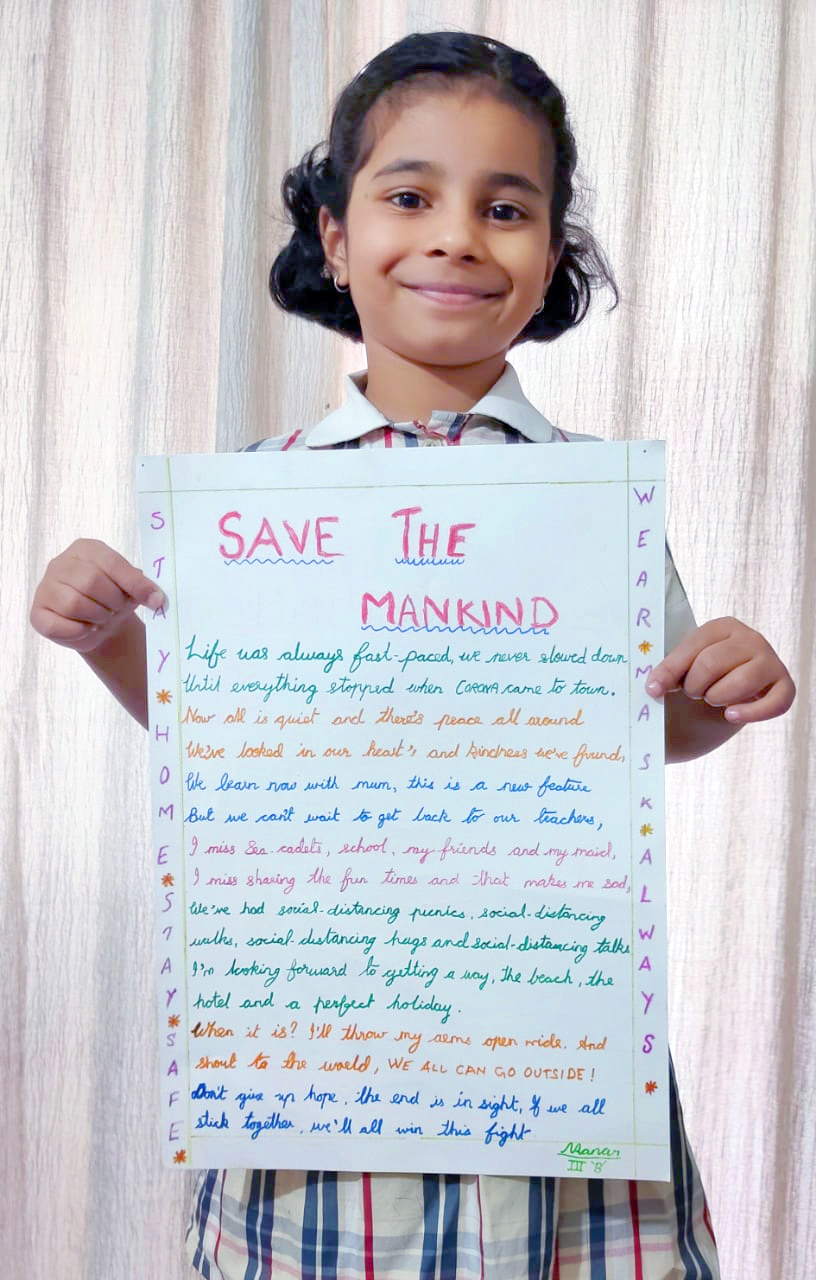 SAVE THE
MANKIND
Life was always fast-paced, we never slowed down
Until everything stopped when CORONA came to town.
Now all is quiet and there's peace all around
We've looked in our heart's and kindness we've found,
We learn now with mum, this is a new feature
But we can't wait to get back to our teachers,
I miss Sea cadets, school, my friends and my maid,
I miss sharing the fun times and that makes me sad,
We've had social-distancing picnics, social-distancing
walks, social-distancing hugs and social-distancing talks
I'm looking forward to getting a way, the beach, the
hotel and a perfect holiday.
When it is? I'll throw my arms open wide. And
shout to the world, WE ALL CAN GO OUTSIDE!
Don't give up hope, the end is in sight, If we all
stick together, we'll all win this fight
III 'B'
STAY HOME STAY SAFE
WEAR MASK ALWAYS